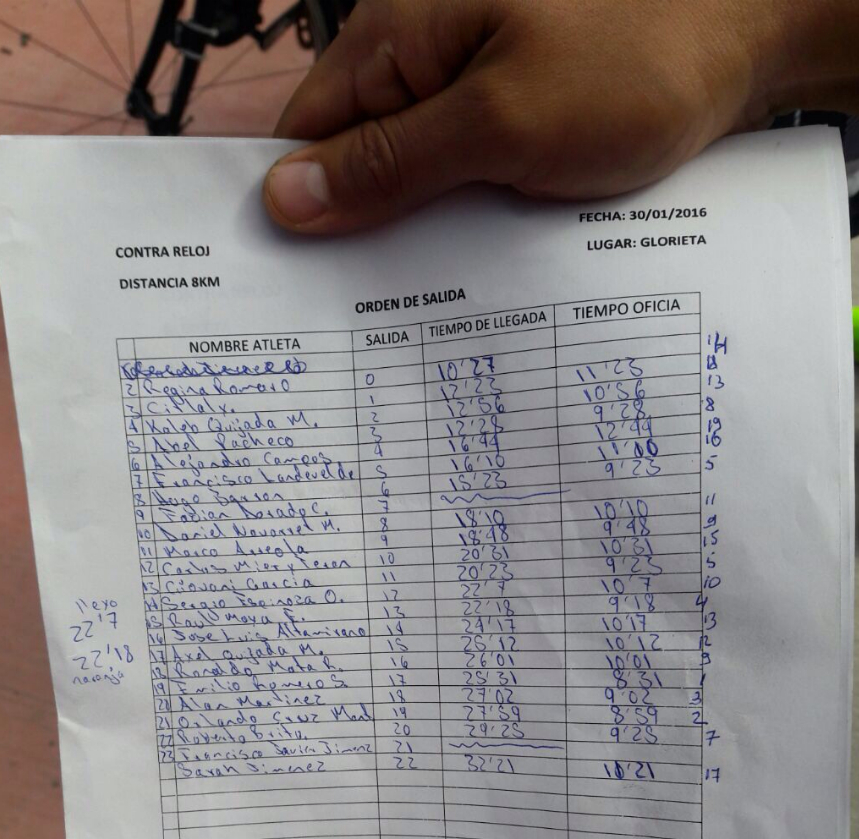 FECHA: 30/01/2016
CONTRA RELOJ
LUGAR: GLORIETA
DISTANCIA 8KM
ORDEN DE SALIDA
NOMBRE ATLETA SALIDA TIEMPO DE LLEGADA TIEMPO OFICIA
2 Regina Romero 0 10'27 11'23
3 Citlaly. 1 12'23 10'56 13
4 Kaleb Quijada M. 2 12'56 9'28 8
5 Axel Pacheco 3 12'28 12'44 19
6 Alejandro Campos 4 16'44 11'10 16
7 Francisco Landevelde 5 16'10 9'23 5
8 Hugo 6 15'23
9 Fabian Dorado C. 7 10'10 11
10 Daniel Navarret M. 8 18'10 9'48 9
11 Marco Arreola 9 18'48 10'31 15
12 Carlos Mier y Teran 10 20'31 9'23 5
13 Giovani Garcia 11 20'23 10'7 10
14 Sergio Espinoza O. 12 22'7 9'18 4
15 Raul Moya F. 13 22'18 10'17 13
16 Jose Luis Altamirano 14 24'17 10'12 12
17 Axel Quijada M. 15 25'12 10'01 9
18 Ronaldo Mata R. 16 26'01 8'31 1
19 Emilio Romero S. 17 25'31 9'02 3
20 Alan Martinez 18 27'02 8'59 2
21 Orlando Cruz 19 27'59 9'25 7
22 Roberto Brito. 20 29'25
23 Francisco Javier Jimenez 21
Sarah Jimenez 22 32'21 10'21 17
22'7
22'18
naranja